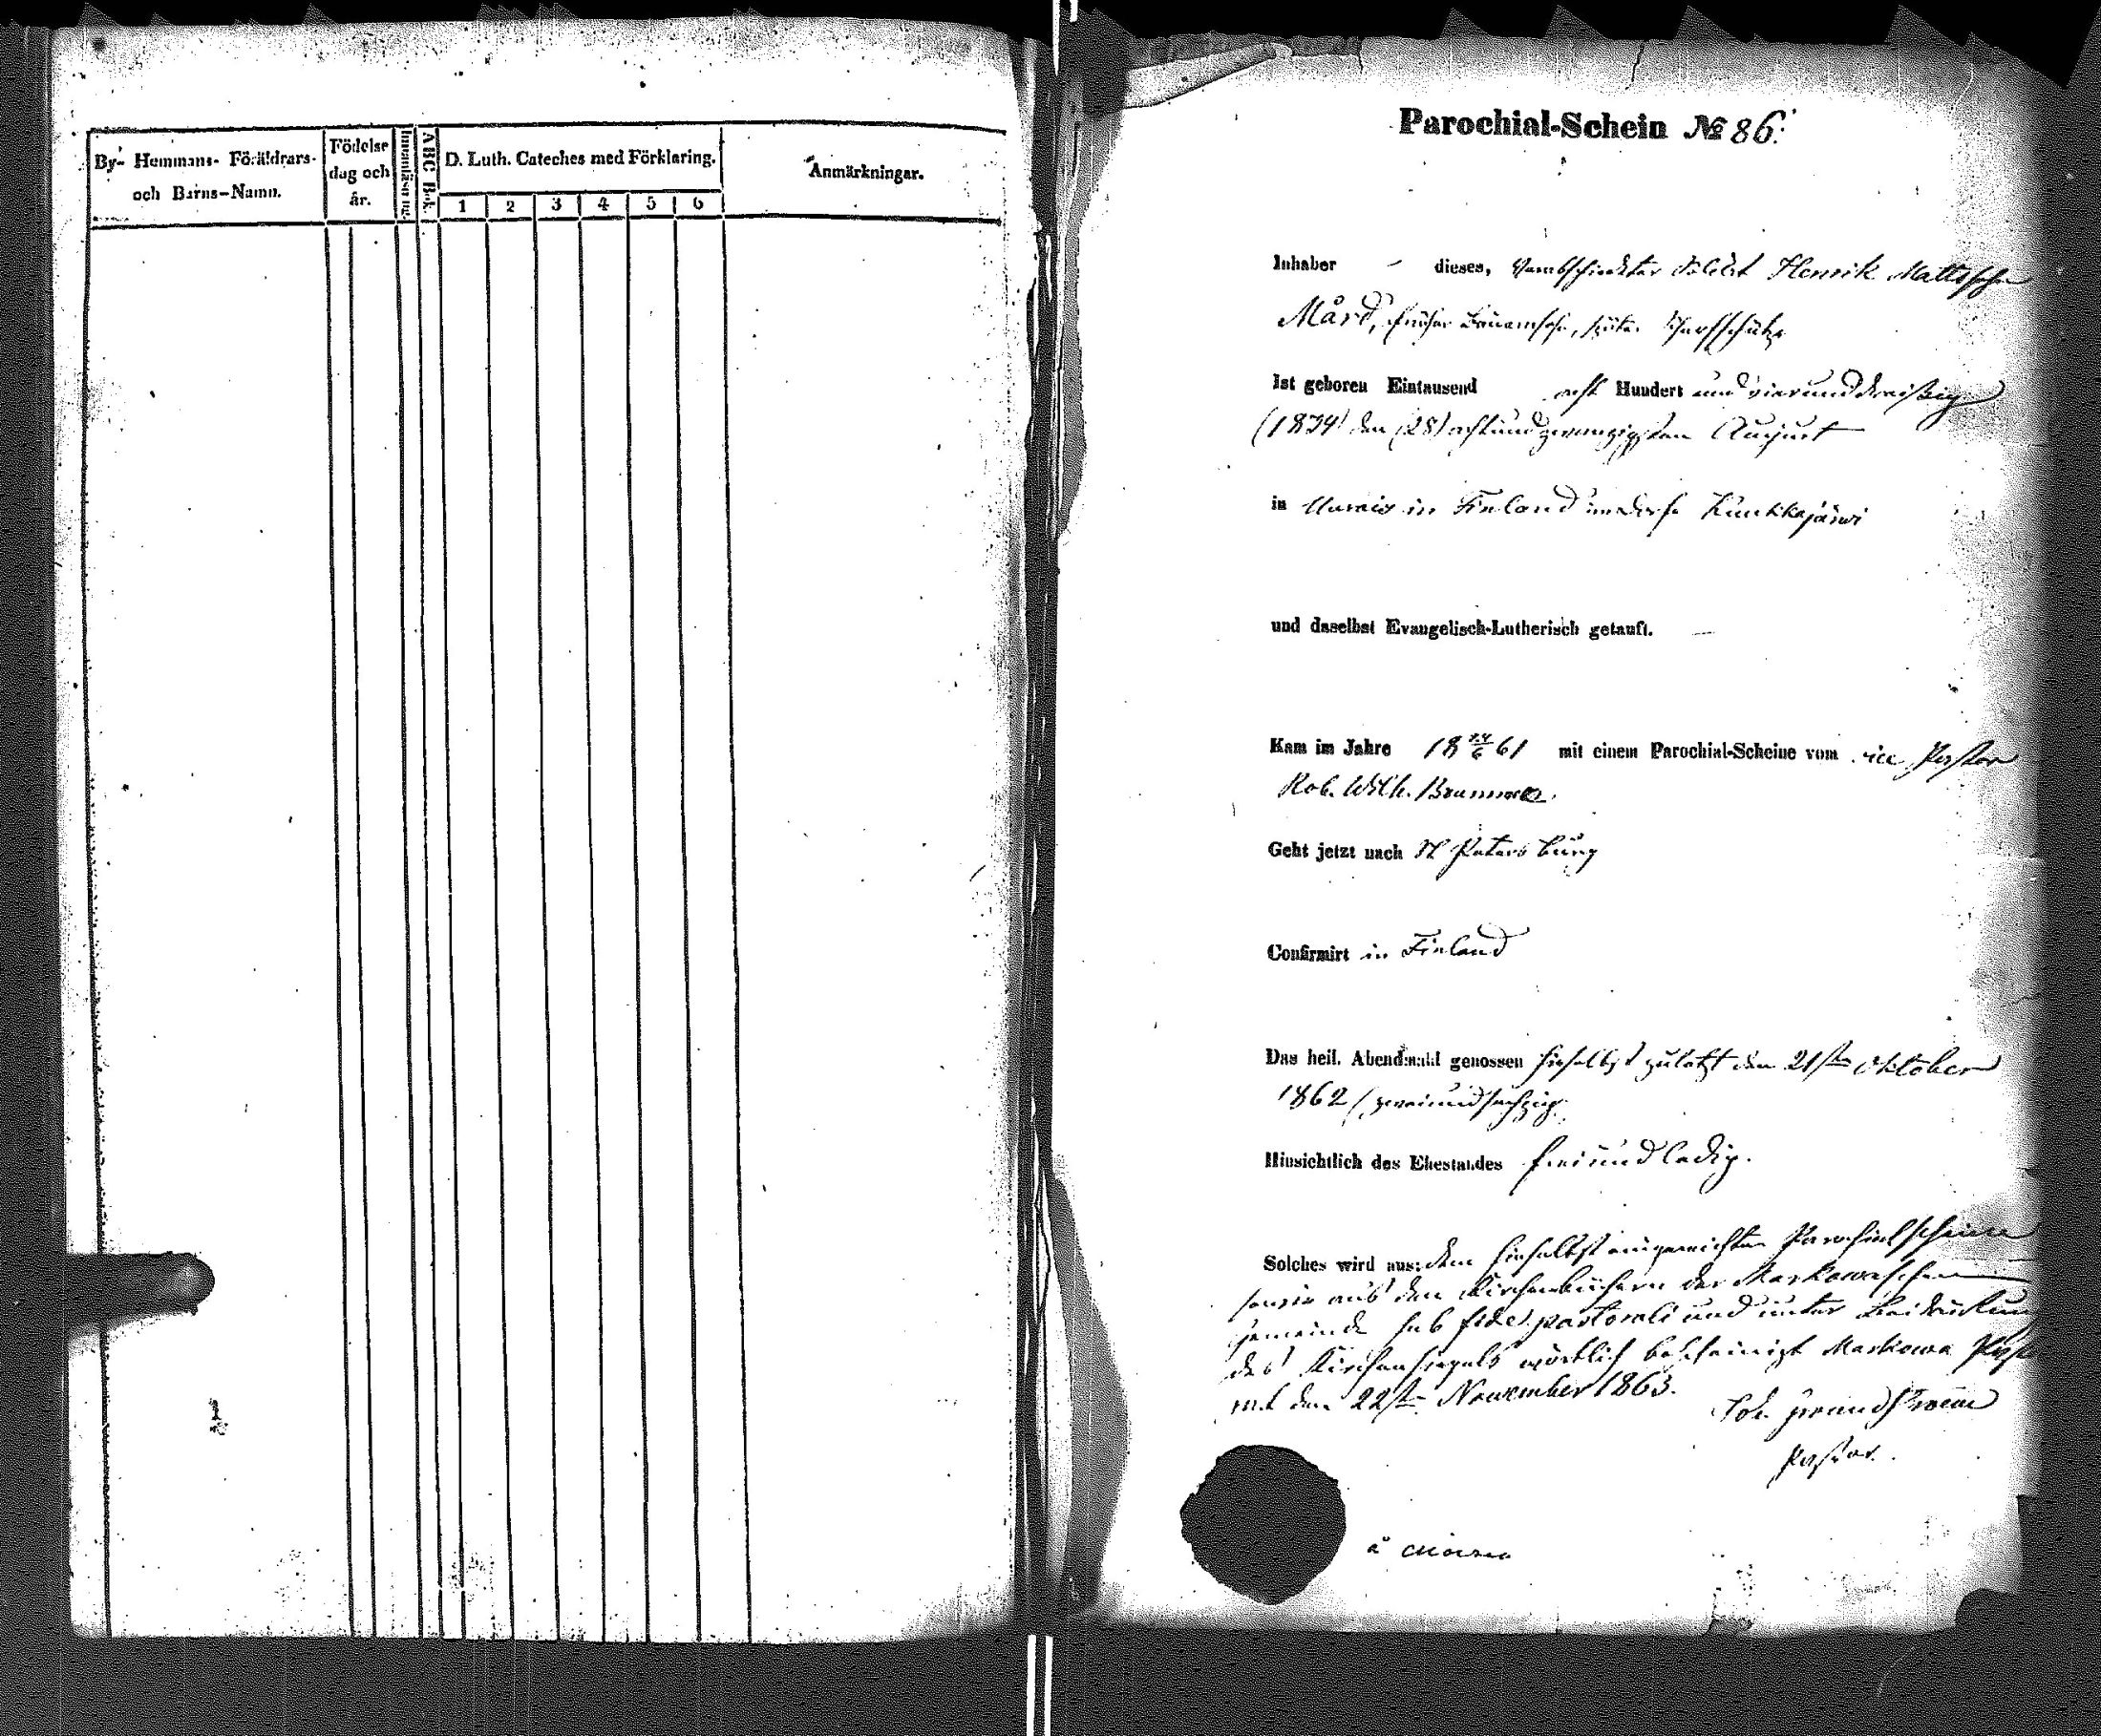 By- Hemmans- Föräldrars-
och Barns-Namn.
Födelse
dag och
år.
Innanläsning.
ABC Bok.
D. Luth. Cateches med Förklaring.
1 2 3 4 5 6
Anmärkningar.
1
Parochial-Schein № 86.
Inhaber dieses, verabschiedeter Soldat Henrik Mattssohn
Mård, früher Bauernsohn, später Scharfschütze
Ist geboren Eintausend acht Hundert und vierunddreißig
(1834) den (28) achtundzwanzigsten August
in in Finland im Dorfe
und daselbst Evangelisch-Lutherisch getauft.
Kam im Jahre 18 24/6 61 mit einem Parochial-Scheine vom vice Pastor
Rob. Wilh.
Geht jetzt nach St Petersburg
Confirmirt in Finland
Das heil. Abendmahl genossen hieselbst zuletzt den 21sten Oktober
1862 (zweiundsechzig
Hinsichtlich des Ehestandes frei und ledig.
Solches wird aus: dem hieselbst eingereichten Parochialscheine
sowie aus den Kirchenbüchern der Markowaschen
Gemeinde sub fide pastorali und unter Beidrückung
des Kirchensiegels wörtlich bescheinigt Markowa
den 22sten November 1863.
Joh.
Pastor.